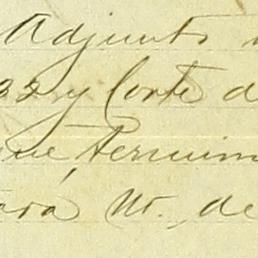 Adjunto
y Corte d
que, termin
ará W. de